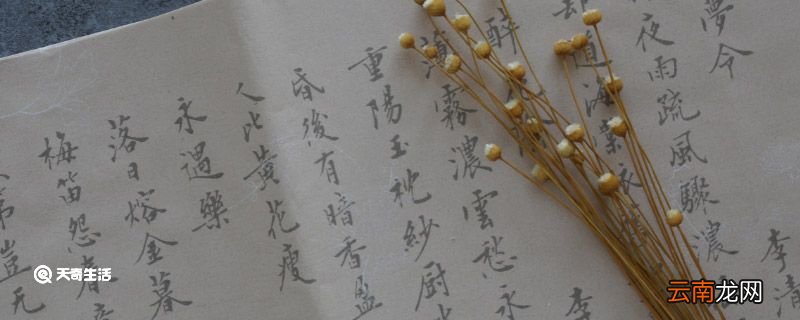 李清
夢令
夜雨疏風驟濃
却道海棠依
李
醉花陰
薄霧濃雲愁永
重陽玉枕紗厨
昏後有暗香盈
人比黄花瘦
永遇樂
落日熔金暮
梅笛怨春
豈无
天奇生活
云南龙网